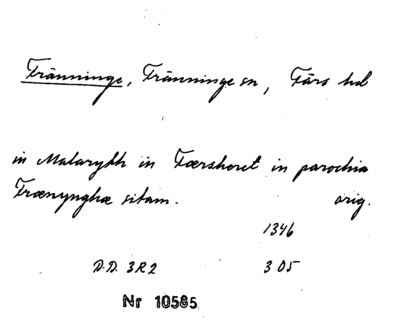 Tränninge, Tränninge sn, Färs hd
in Malarydh in Færsheret in parochia
Trænynghæ sitam. orig.
1346
D.D. 3R2 305
Nr 10585